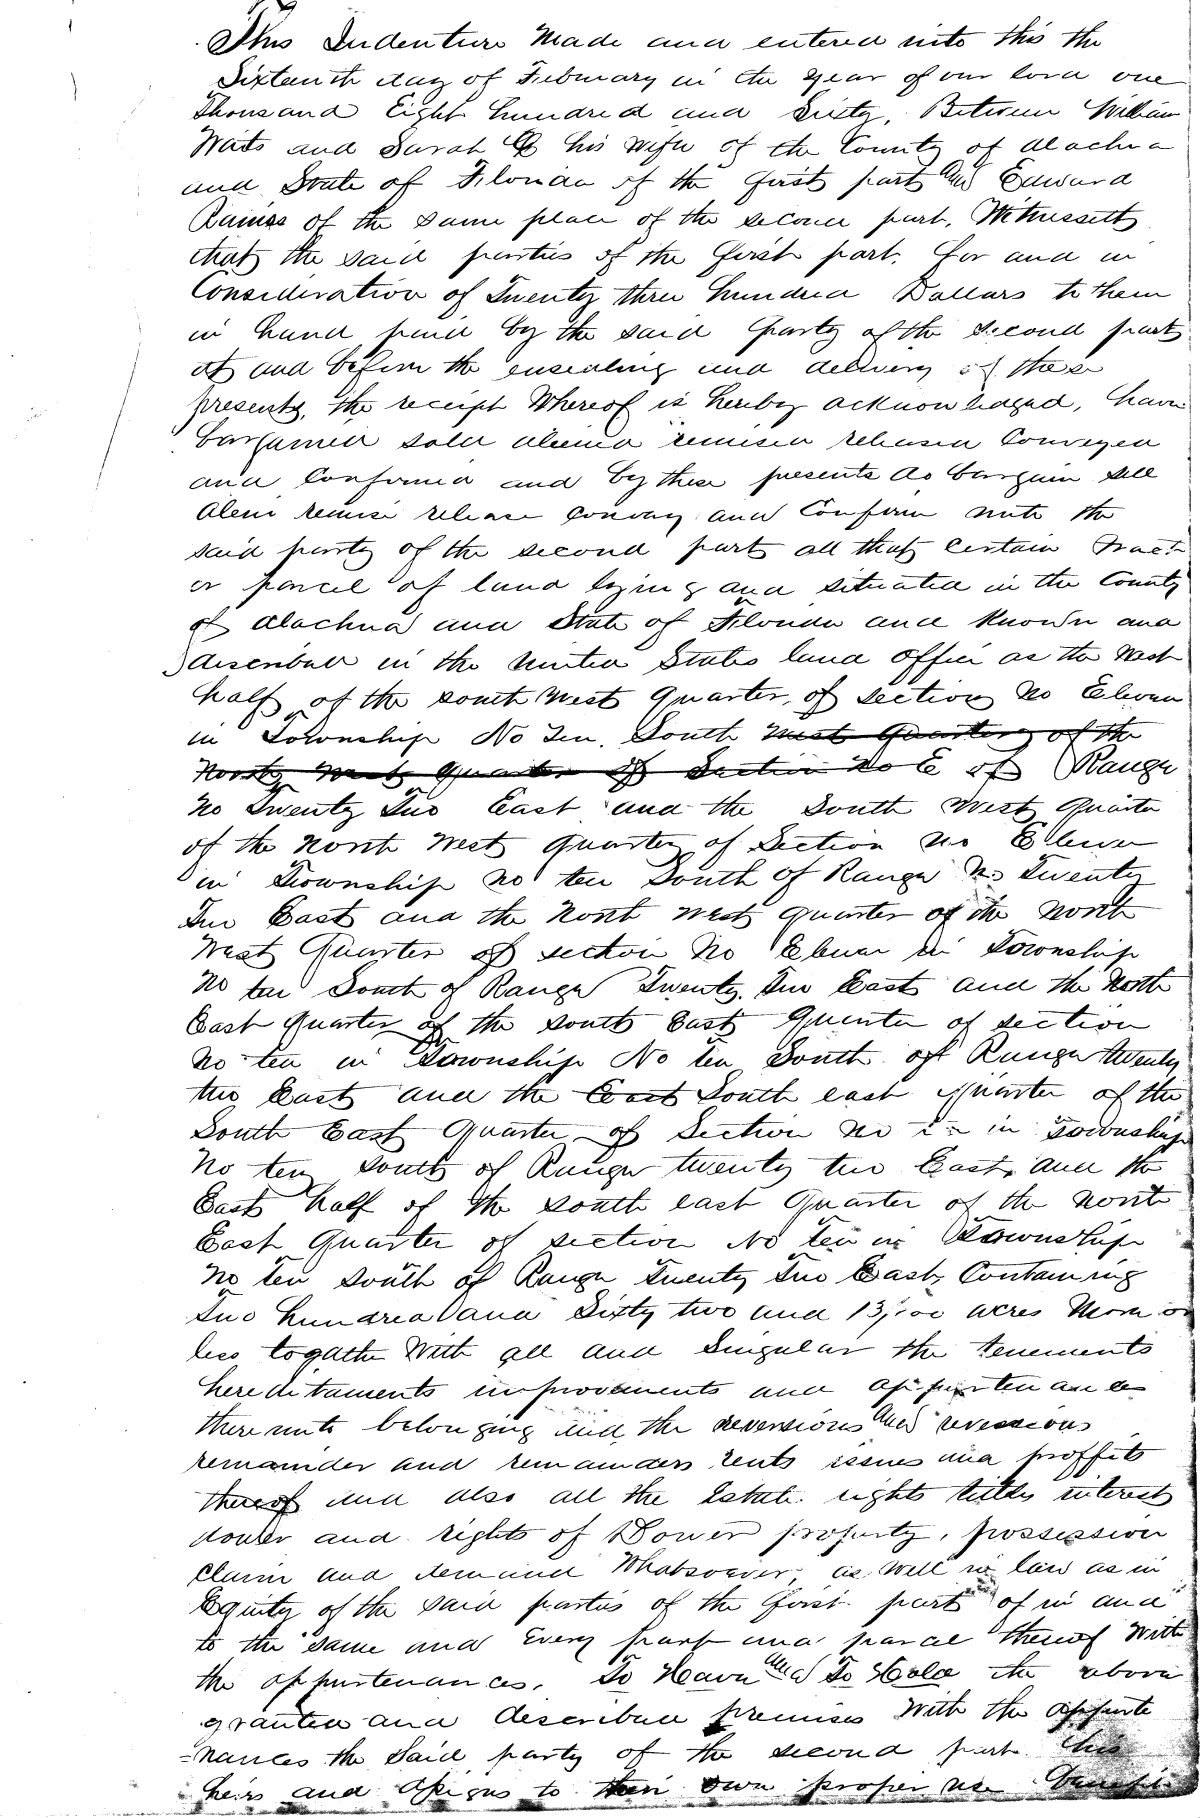 This Indenture Made and entered into this the
Sixteenth day of February in the year of our lord one
Thousand Eight hundred and Sixty, Between William
Watts and Sarah his wife of the County of Alachua
and State of Florida of the first part and Edward
of the same place of the second part, Witnesseth
that the said parties of the first part, for and in
Consideration of Twenty three hundred Dollars to them
in hand paid by the said party of the second part
at and before the ensealing and delivery of these
presents, the receipt Whereof is hereby acknowledged, have
bargained sold aliened remised released Conveyed
and Confirmed and by these presents do bargain sell
alein remise release Convey and Confirm unto the
said party of the second part all that certain Tract
or parcel of land lying and situated in the County
of Alachua and State of Florida and Known and
described in the United States land office as the West
half of the south West quarter, of section No Eleven
in Township No Ten, South West quarter of the
North West quarter of Section No E of Range
No Twenty Two East and the South West quarter
of the North West quarter of Section No Eleven
in Township no ten South of Range No Twenty
Two East and the North west quarter of the North
West Quarter of section No Eleven in Township
No ten South of Range Twenty Two East and the North
East quarter of the South East Quarter of section
no ten in Township No Ten South of Range twenty
two East and the East South east quarter of the
South East Quarter of Section No in Township
No ten south of Range twenty two East, and the
East half of the south east Quarter of the North
East Quarter of section No Ten in Township
No ten south of Range Twenty Two East, Containing
Two hundred and Sixty two and 13/100 acres More or
less togather With all and Singular the tenements
hereditaments improvements and appurtenances
thereunto belonging and the reversions and reversions
remainder and remainders rents issues and proffits
thereof and also all the Estate rights titles interest
dower and rights of Dower property, possession
Claim and demand Whatsoever, as well in law as in
Equity of the said parties of the first part of in and
to the same and Every part and parcel thereof With
the appurtenances, To Have and To Hold the above
granted and described premises With the appurte
=nances the Said party of the second part his
heirs and assigns to their own proper use benefit